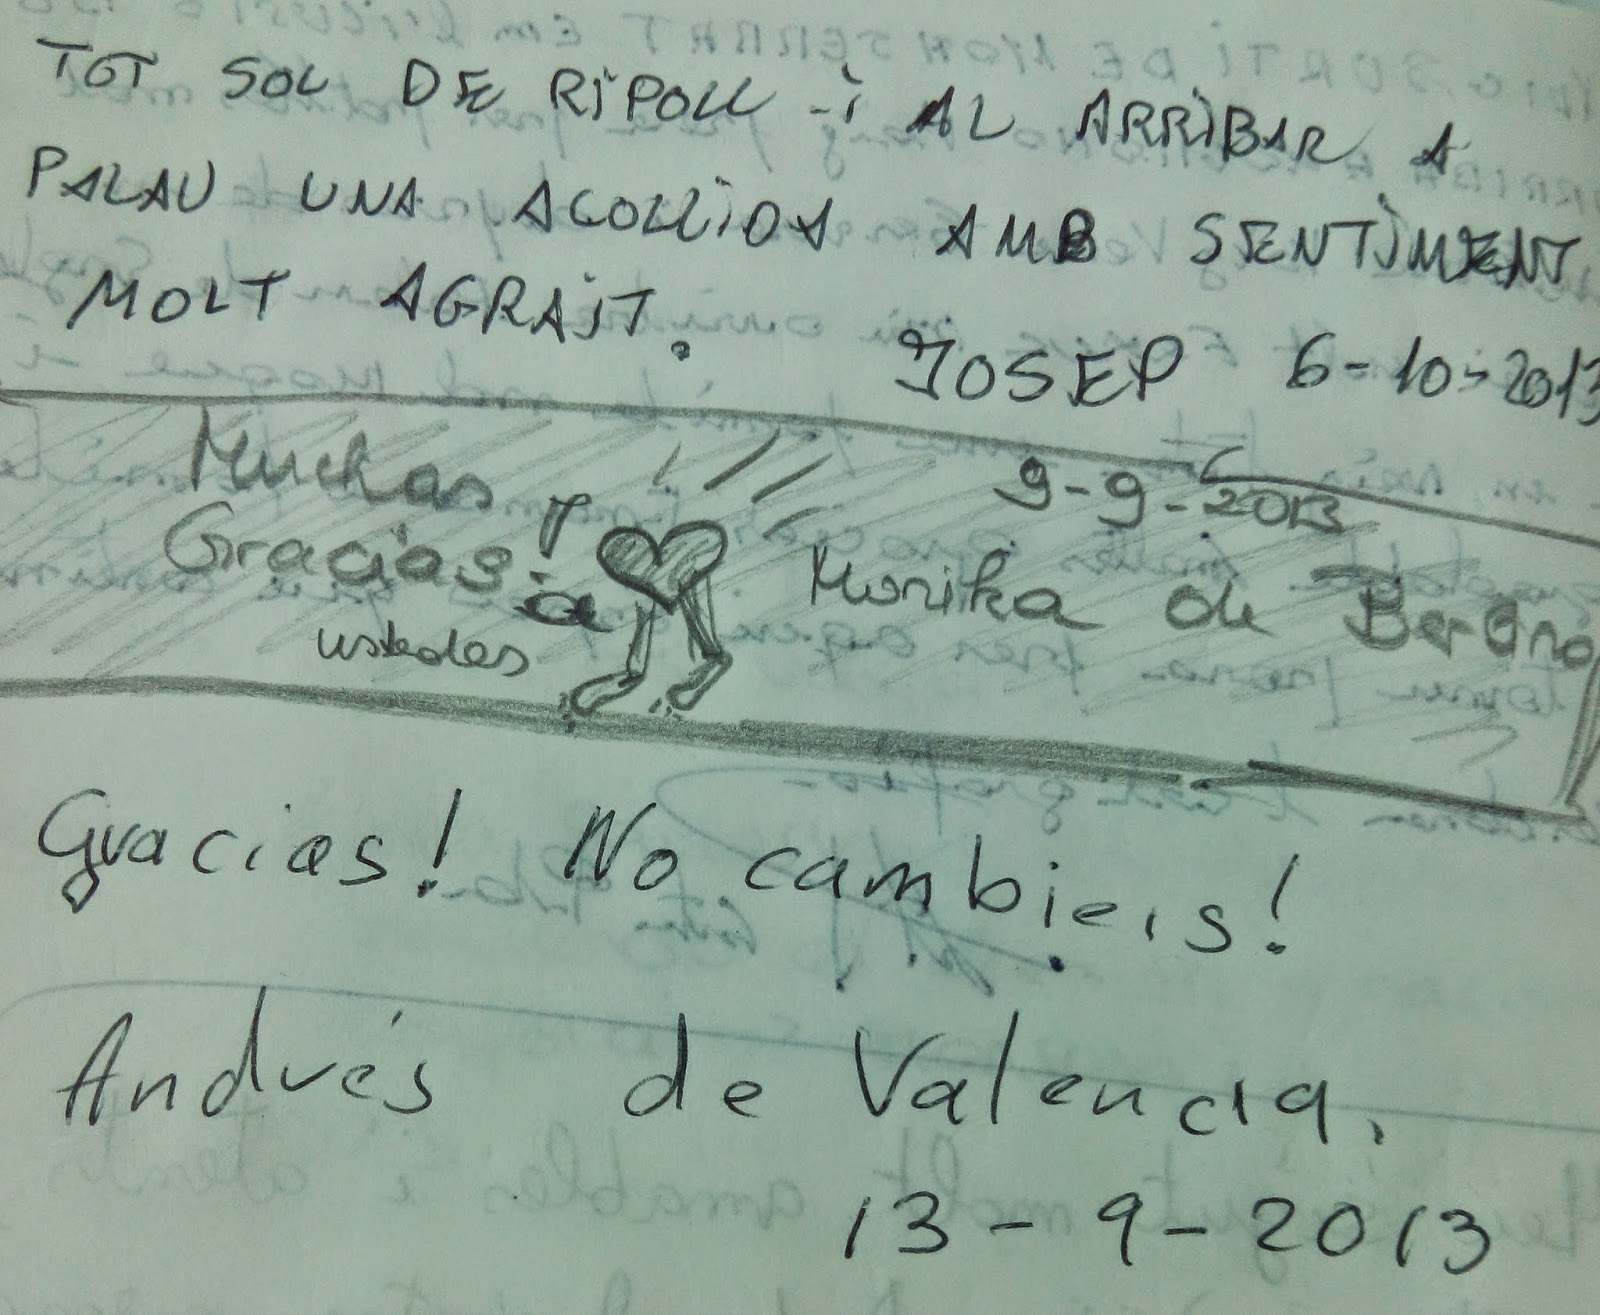 TOT SOL DE RIPOLL -I AL ARRIBAR A
PALAU UNA ACOLLIDA AMB SENTIMENT
MOLT AGRAIT.
JOSEP 6-10-2013
Muchas
Gracias! a
ustedes
9-9-2013
Monika de
Gracias! No cambieis!
Andrés de Valencia.
13-9-2013